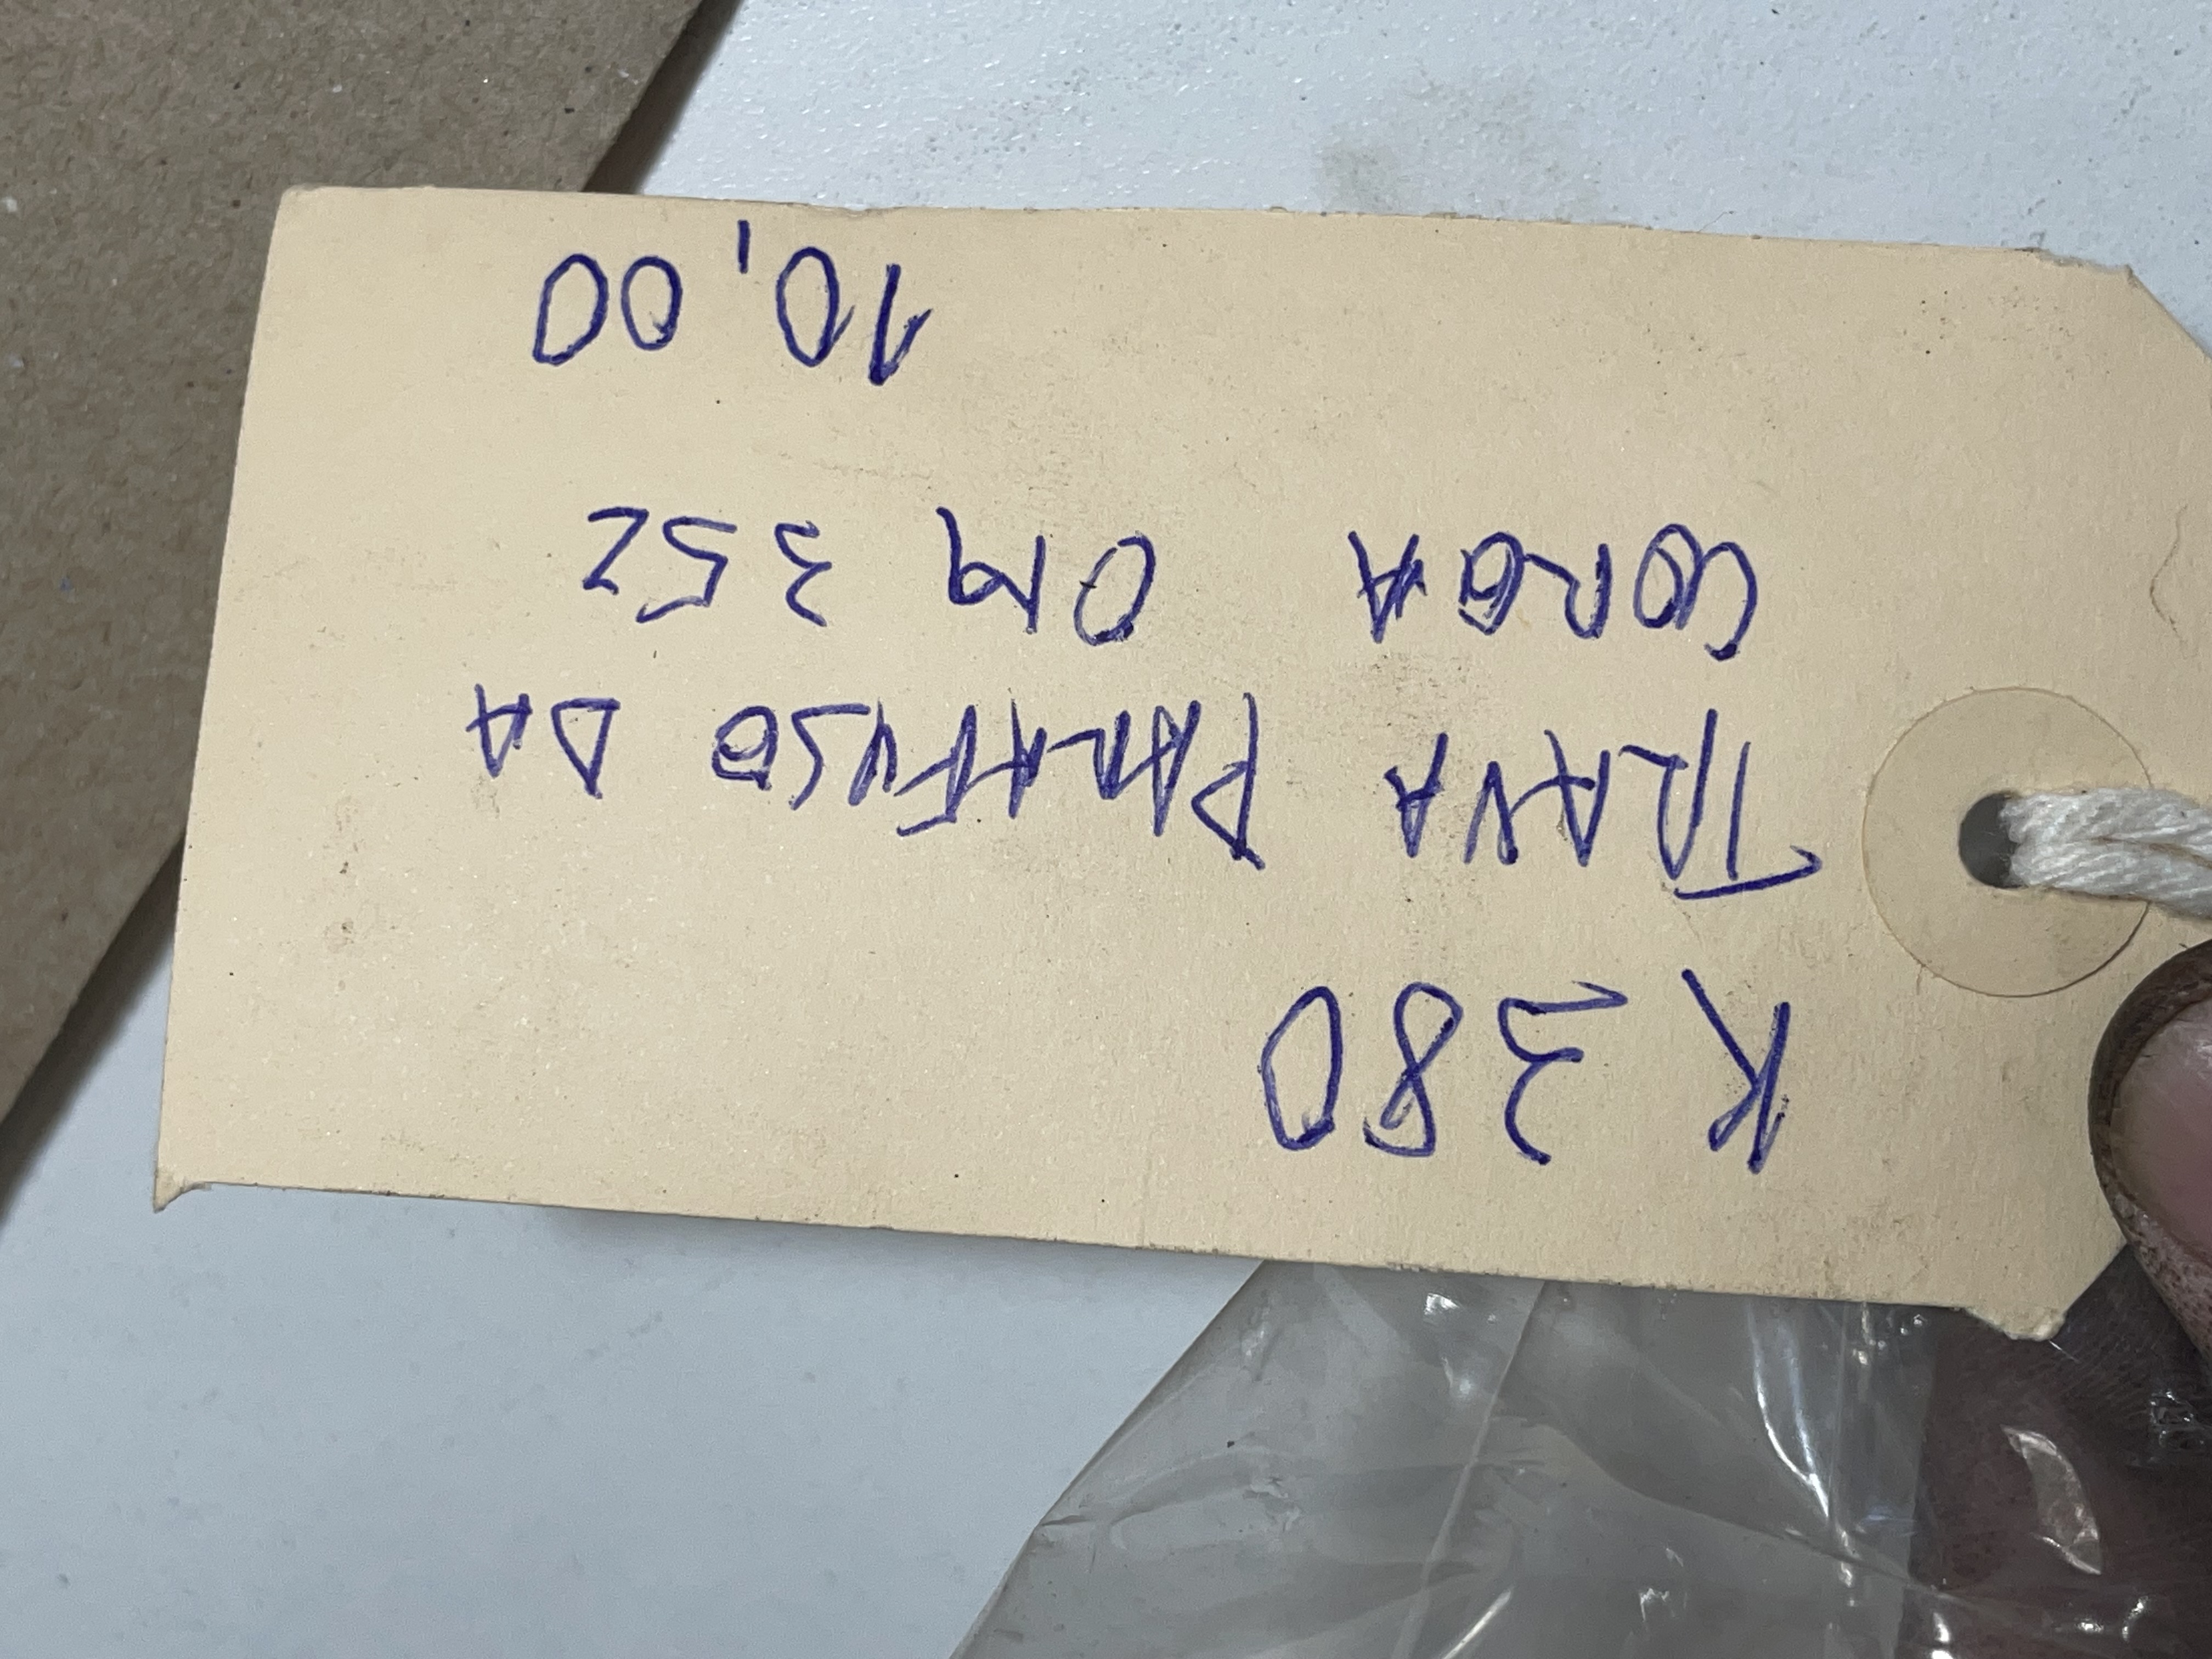 K 380
TRAVA PARAFUSO DA
COROA OM 352
10,00